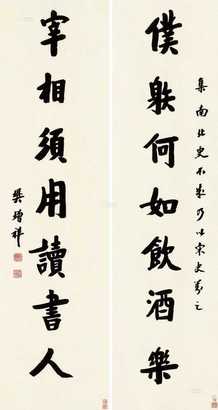 僕䠶何如飲酒樂
集南北史不 乃以宋史 之
宰相須用讀書人
樊增祥